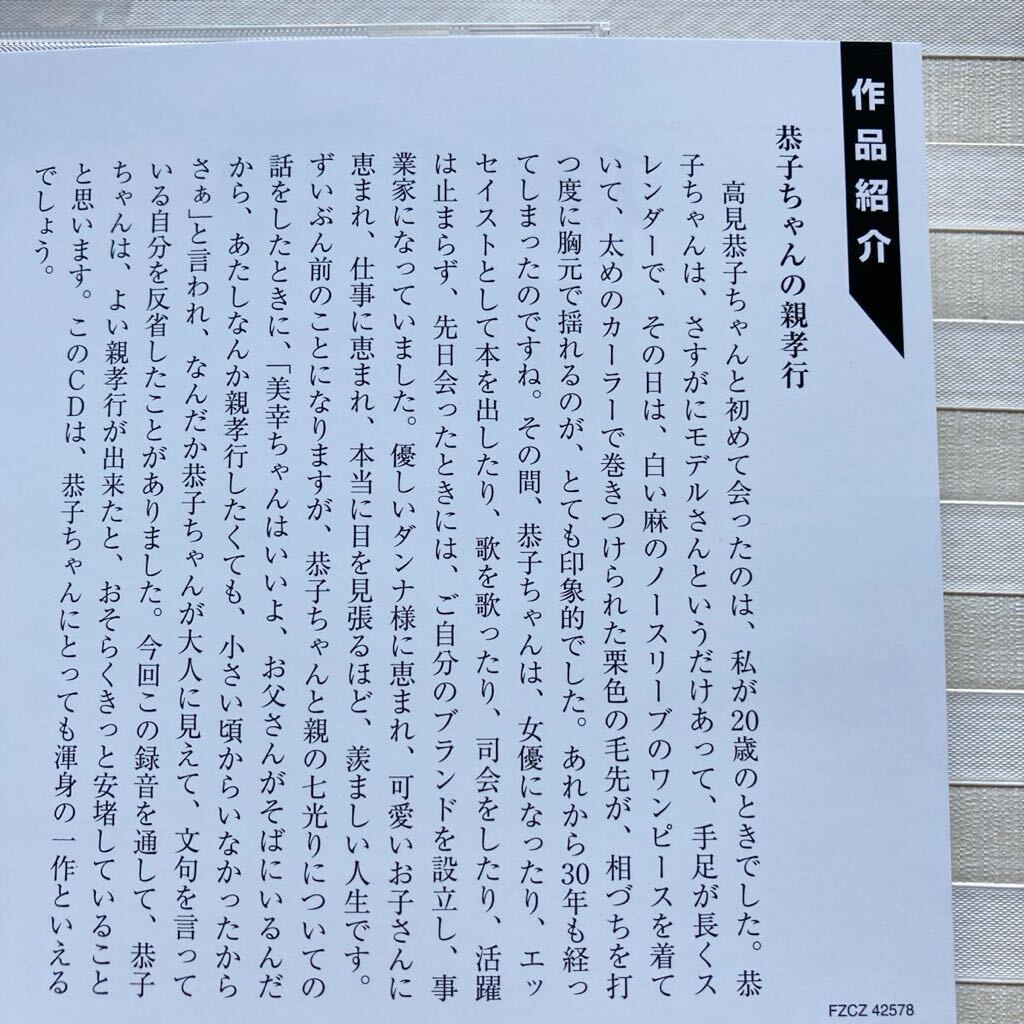 作品紹介
恭子ちゃんの親孝行
高見恭子ちゃんと初めて会ったのは、私が20歳のときでした。恭
子ちゃんは、さすがにモデルさんというだけあって、手足が長くス
レンダーで、その日は、白い麻のノースリーブのワンピースを着て
いて、太めのカーラーで巻きつけられた栗色の毛先が、相づちを打
つ度に胸元で揺れるのが、とても印象的でした。あれから30年も経っ
てしまったのですね。その間、恭子ちゃんは、女優になったり、エッ
セイストとして本を出したり、歌を歌ったり、司会をしたり、活躍
は止まらず、先日会ったときには、ご自分のブランドを設立し、事
業家になっていました。優しいダンナ様に恵まれ、可愛いお子さんに
恵まれ、仕事に恵まれ、本当に目を見張るほど、羨ましい人生です。
ずいぶん前のことになりますが、恭子ちゃんと親の七光りについての
話をしたときに、「美幸ちゃんはいいよ、お父さんがそばにいるんだ
から、あたしなんか親孝行したくても、小さい頃からいなかったから
さぁ」と言われ、なんだか恭子ちゃんが大人に見えて、文句を言って
いる自分を反省したことがありました。今回この録音を通して、恭子
ちゃんは、よい親孝行が出来たと、おそらくきっと安堵していること
と思います。このCDは、恭子ちゃんにとっても渾身の一作といえる
でしょう。
FZCZ 42578